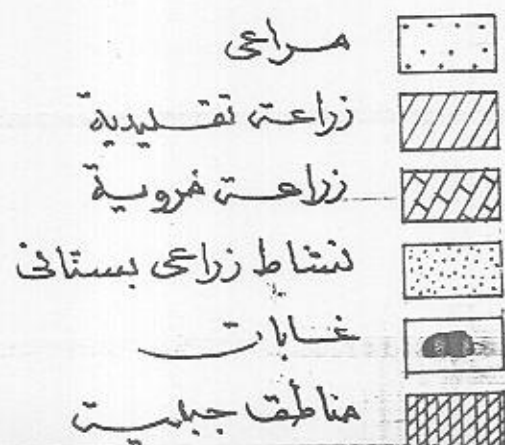 مراعى
زراعة تقليدية
زراعة مروية
نشاط زراعى بستانى
غابات
مناطق جبلية